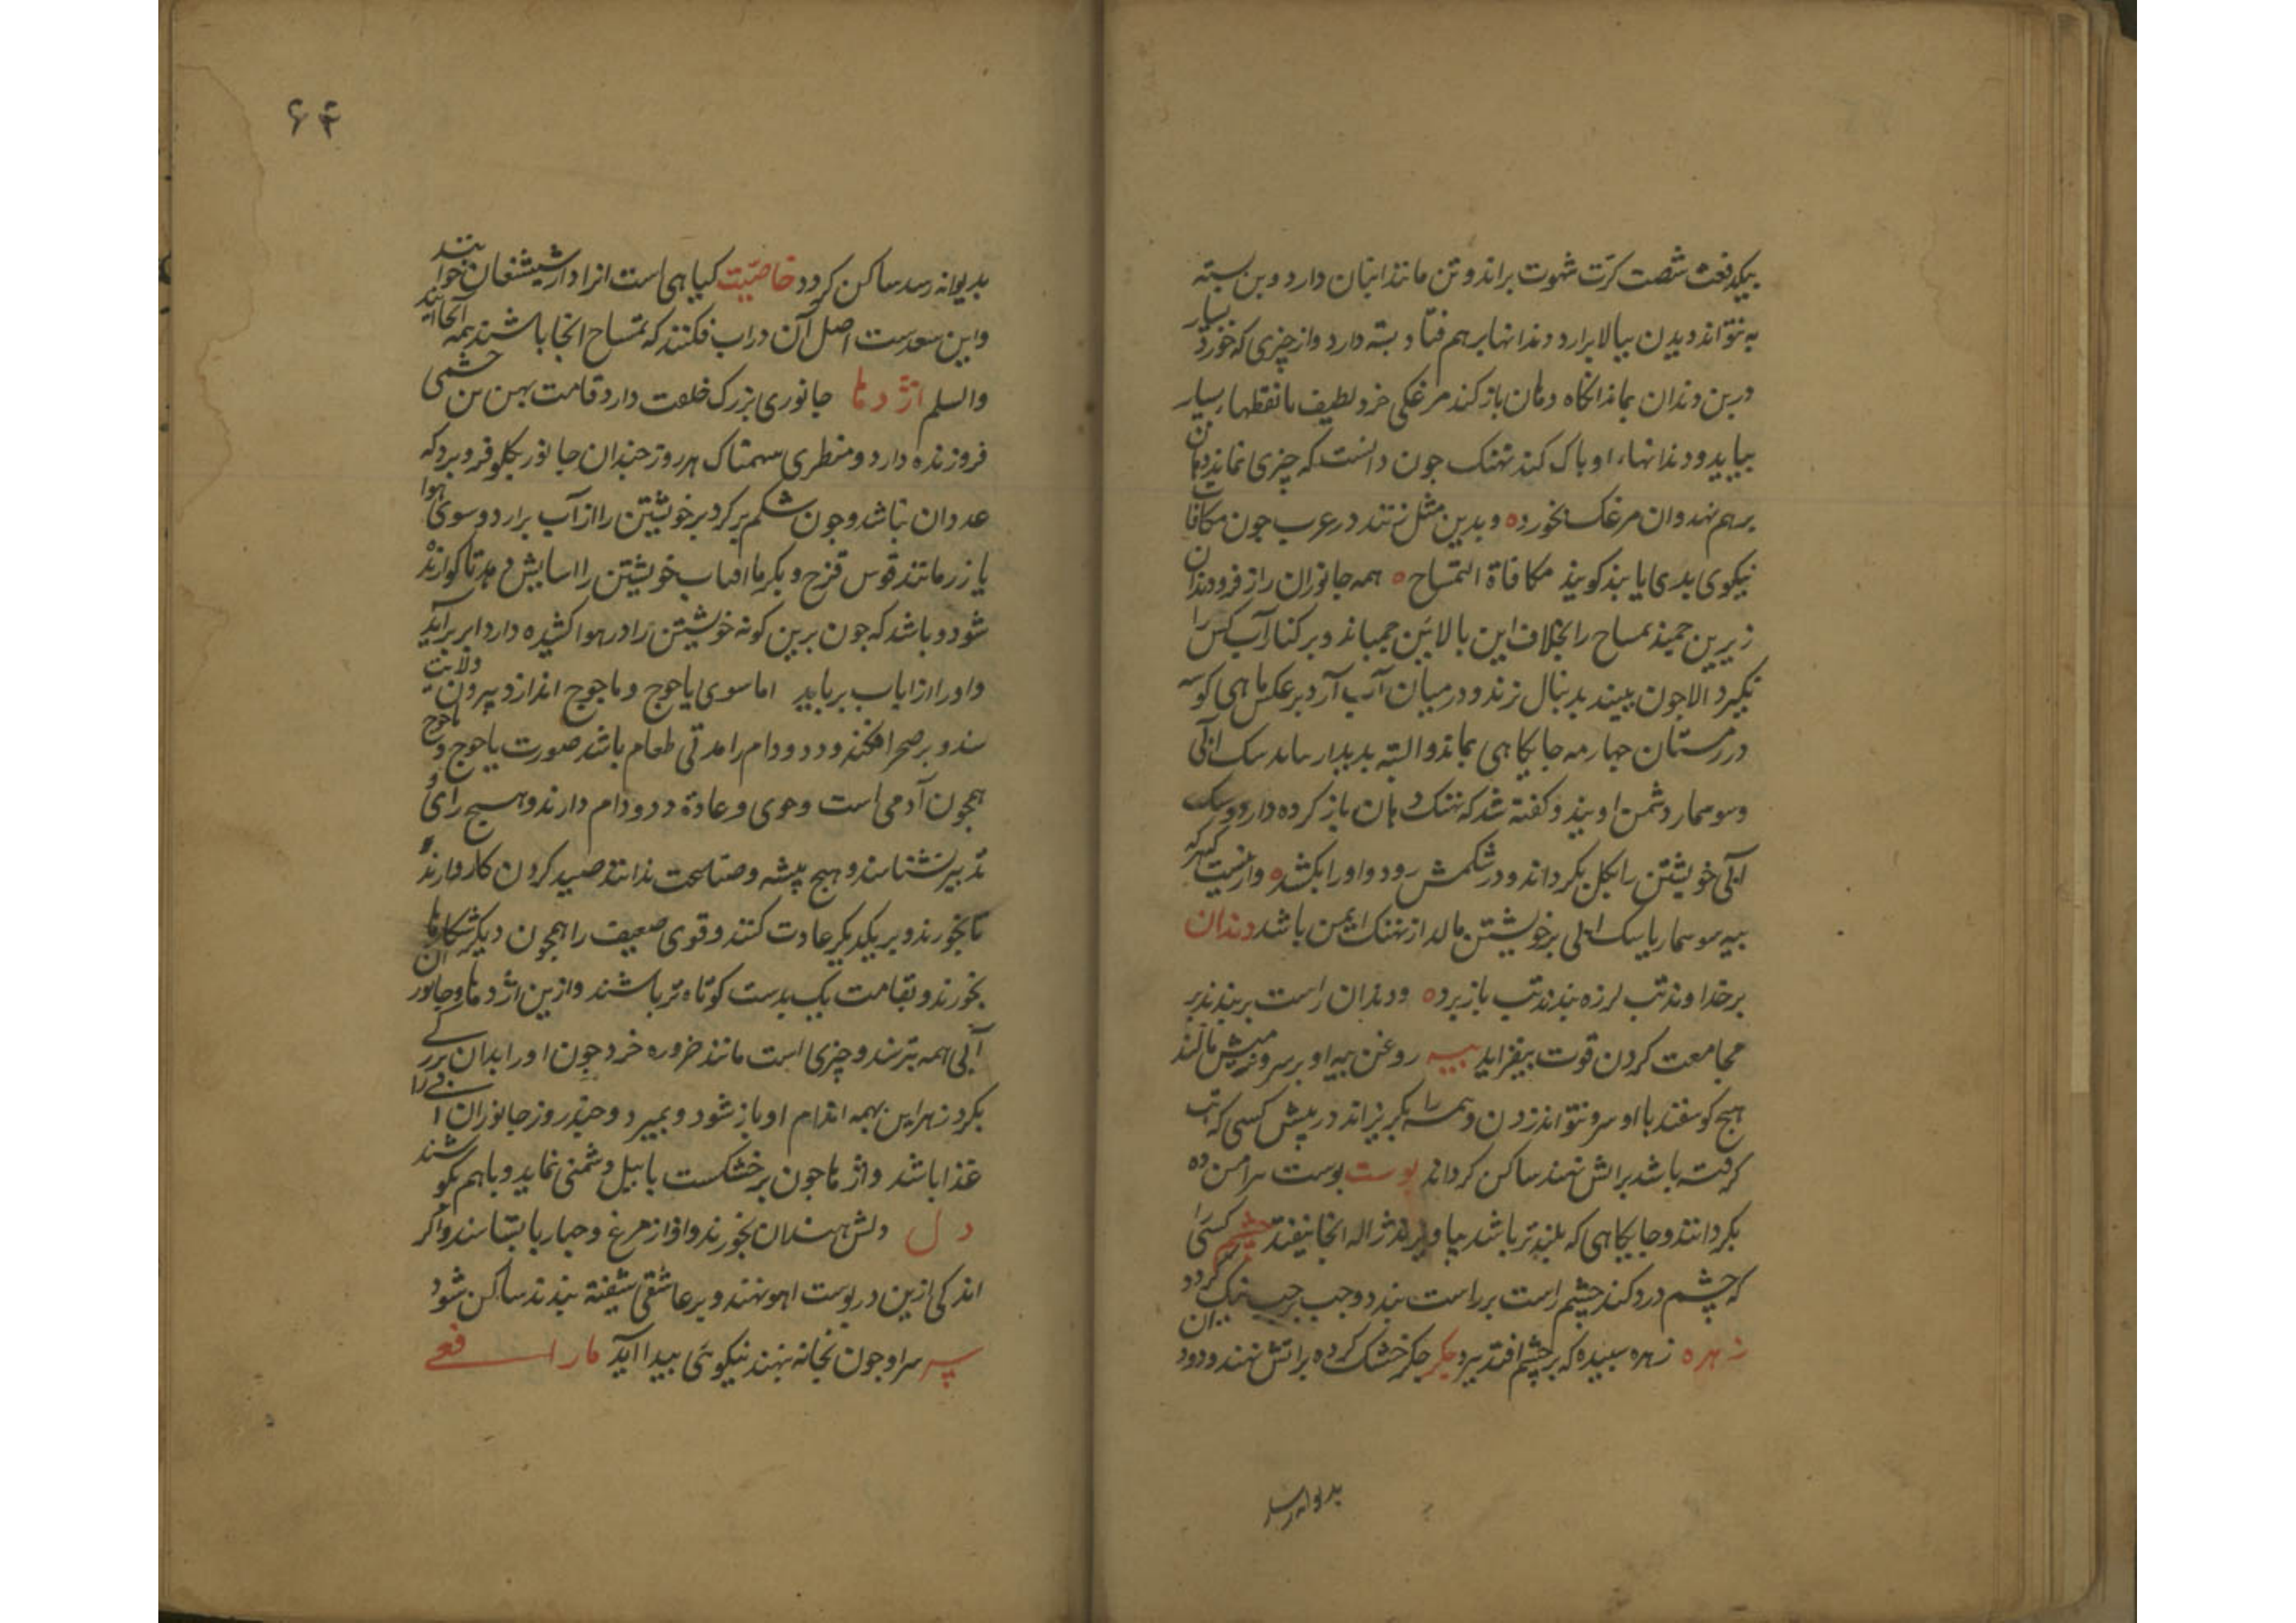 بیکدفعت شصت کرّت شهوت براند و تن مانند انبان دارد و بن بسته
به نتواند دیدن ببالا برارد و دندانها برهم فتاد و بسته دارد و از چیزی که خورد بسیار
در بن دندان بماند آنکاه دهان باز کند مرغکی خرد لطیف با نقطها بسیار
بیاید و دندانهاء او پاک کند نهنک جون دانست که چیزی نماند دهان
برهم نهد و ان مرغک بخورد ه و بدین مثل زنند در عرب جون مکافات
نیکوی بدی یابند کویند مکافاة التمساح ه همه جانوران را ز فرو دندان
زیرین جمبد تمساح را بخلاف این بالائین جمباند و بر کنار آب کس را
نکیرد الا جون ببیند بدنبال زند و در میان آب آرد برعکس ماهی کوسه
در زمستان جهار مه جایکاهی بماند و البته بدیدار نیاید سک ابی
و سوسمار دشمن اویند و کفته شد که نهنک دهان باز کرده دارد و سک
آبی خویشتن را بکل بکرداند و در شکمش رود و او را بکشد ه و از نسبت که هرکه
بیه سوسمار یا سک ابی بر خویشتن مالد از نهنک ایمن باشد دندان
بر خداوند تب لرزه بندند تب باز برد ه و دندان راست بربندند بر
مجامعت کردن قوت بیفزاید بیه روغن بیه او بر سرو میش مالند
هیج کوسفند با او سرو نتواند زدن و همه را بکریزاند در پیش کسی که تب
کرفته باشد براتش نهند ساکن کرداند بوست بوست
بکردانند و جایکاهی که بلندتر باشد بیاویزند ژاله انجا نیفتد چشم کسی را
که چشم درد کند چشم راست بر راست بندد و جب بر جب نیک کردد
زهره زهره سبیده که بر چشم افتد ببرد جکر جکر خشک کرده براتش نهند و دود
بدیوانه رسد
۶۴
بدیوانه رسد ساکن کردد خاصیّت کیاهی است انرا دارشیشعان خوانند
و این سعدست اصل آن در اب فکنند که تمساح انجا باشند همه آنجا آیند
والسلم اژدها جانوری بزرک خلقت دارد قامت بهن تن چشمی
فروزنده دارد و منظری سهمناک هر روز جندان جانور بکلو فرو برد که
عدد ان نباشد و جون شکم پر کرد برخویشتن را از آب برارد و سوی هوا
یازد مانند قوس قزح و بکرما افتاب خویشتن را اسایش دهد تا کوارنده
شود و باشد که جون برین کونه خویشتن را در هوا کشیده دارد ابر برآید
و او را از اب برباید اما سوی یاجوج و ماجوج اندازد بیرون ولایت
سد و بر صحرا افکند و دد و دام را مدتی طعام باشد صورت یاجوج و ماجوج
همجون آدمی است و خوی و عادة دد و دام دارند و هیسج رای و
تدبیر نشناسند و هیج پیشه و صناعت ندانند صید کردن کار دارند و
تا بخورند و بر یکدیکر عادت کنند و قوی ضعیف را همجون دیکر شکارها
بخورند و بقامت یک بدست کوتاه تر باشند و ازین اژدها و جانوران
آبی همه بترسند و چیزی است مانند خروره خرد جون او را بدان بزرکی
بکزد زهر این بهمه اندام او باز شود و بمیرد و جند روز جانوران ابی را
غذا باشد و اژدها جون بر خشکست با پیل دشمنی نماید و باهم بکوشند
دل دلش هندوان بخورند و اواز مرغ و جهاربا بشناسند و اکر
اندکی ازین در بوست اهو نهند و بر عاشقی شیفته بندند ساکن شود
سر سر او جون بخانه بنهند نیکوئی بیدا آید مار افعی